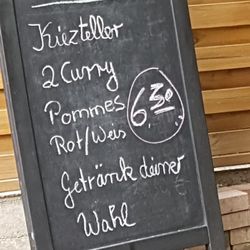 Kiezteller
2 Curry
Pommes
Rot/Weis
6,30
Getränk deiner
Wahl